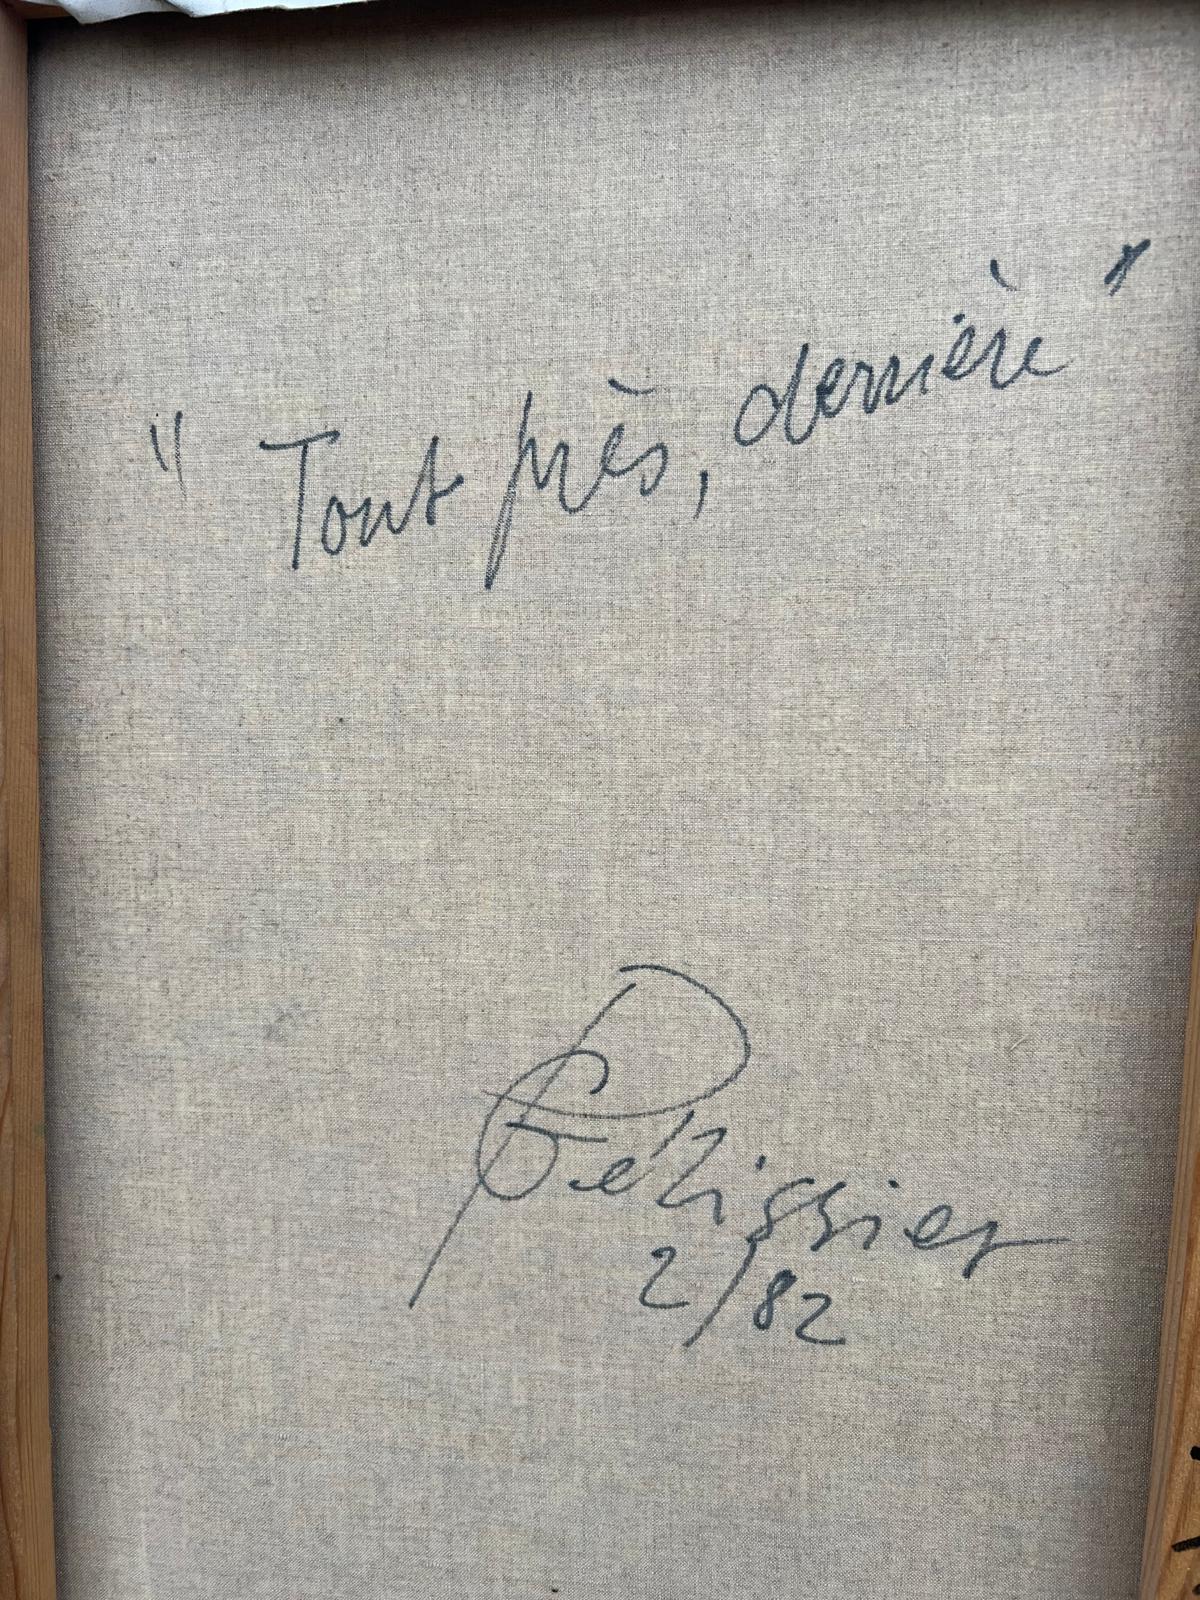 "Tout près, derrière"
G. Pélissier
2/82